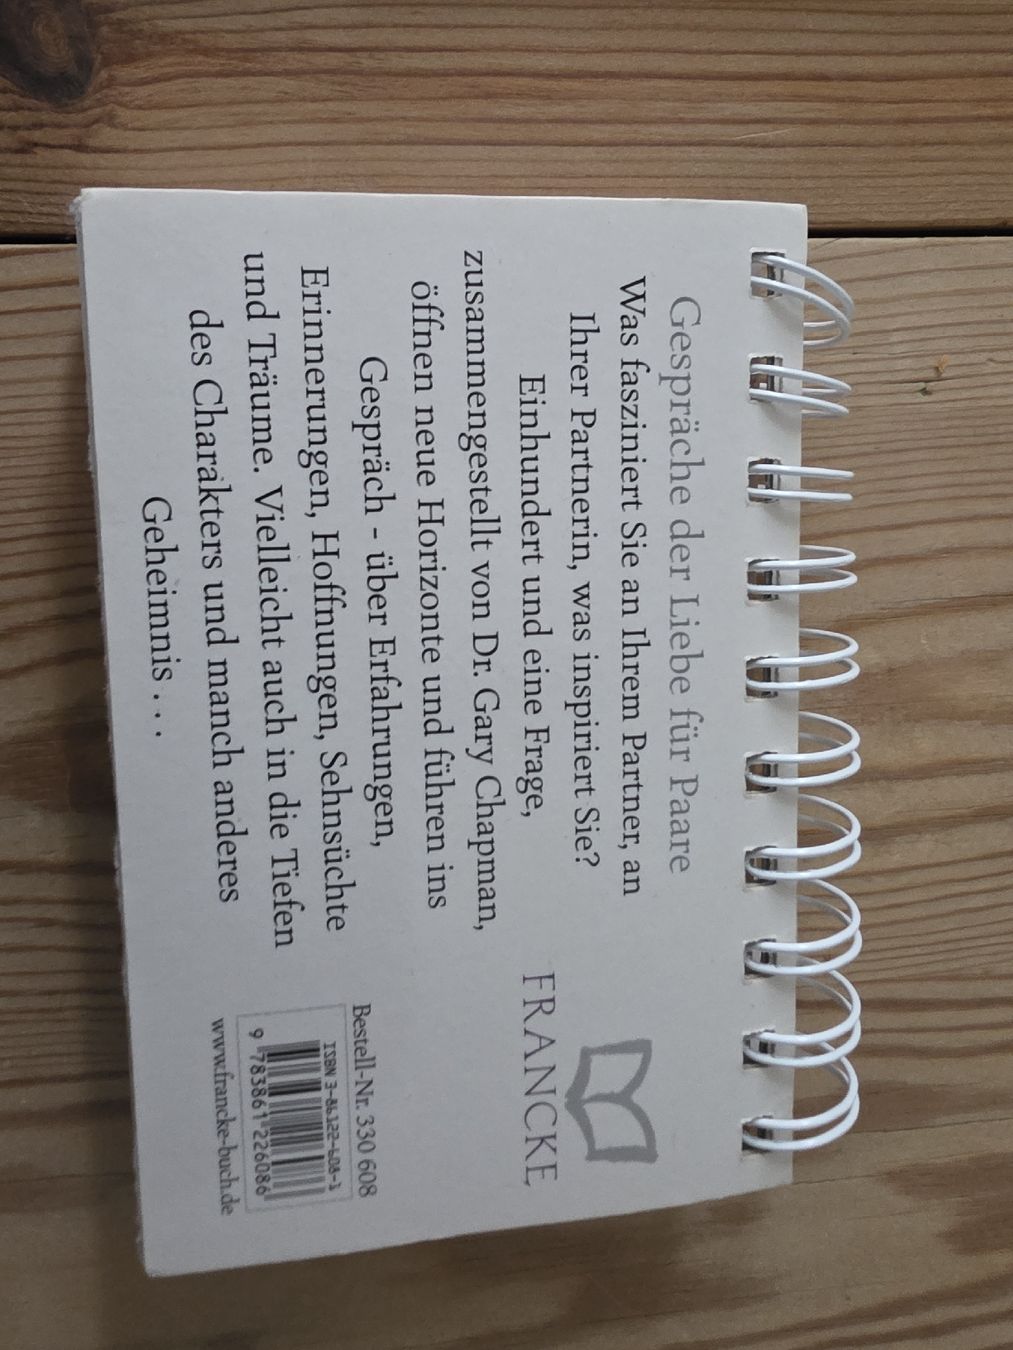 Gespräche der Liebe für Paare
Was fasziniert Sie an Ihrem Partner, an
Ihrer Partnerin, was inspiriert Sie?
Einhundert und eine Frage,
zusammengestellt von Dr. Gary Chapman,
öffnen neue Horizonte und führen ins
Gespräch - über Erfahrungen,
Erinnerungen, Hoffnungen, Sehnsüchte
und Träume. Vielleicht auch in die Tiefen
des Charakters und manch anderes
Geheimnis . . .
FRANCKE
Bestell-Nr. 330 608
ISBN 3-86122-608-1
9 783861 226086
www.francke-buch.de